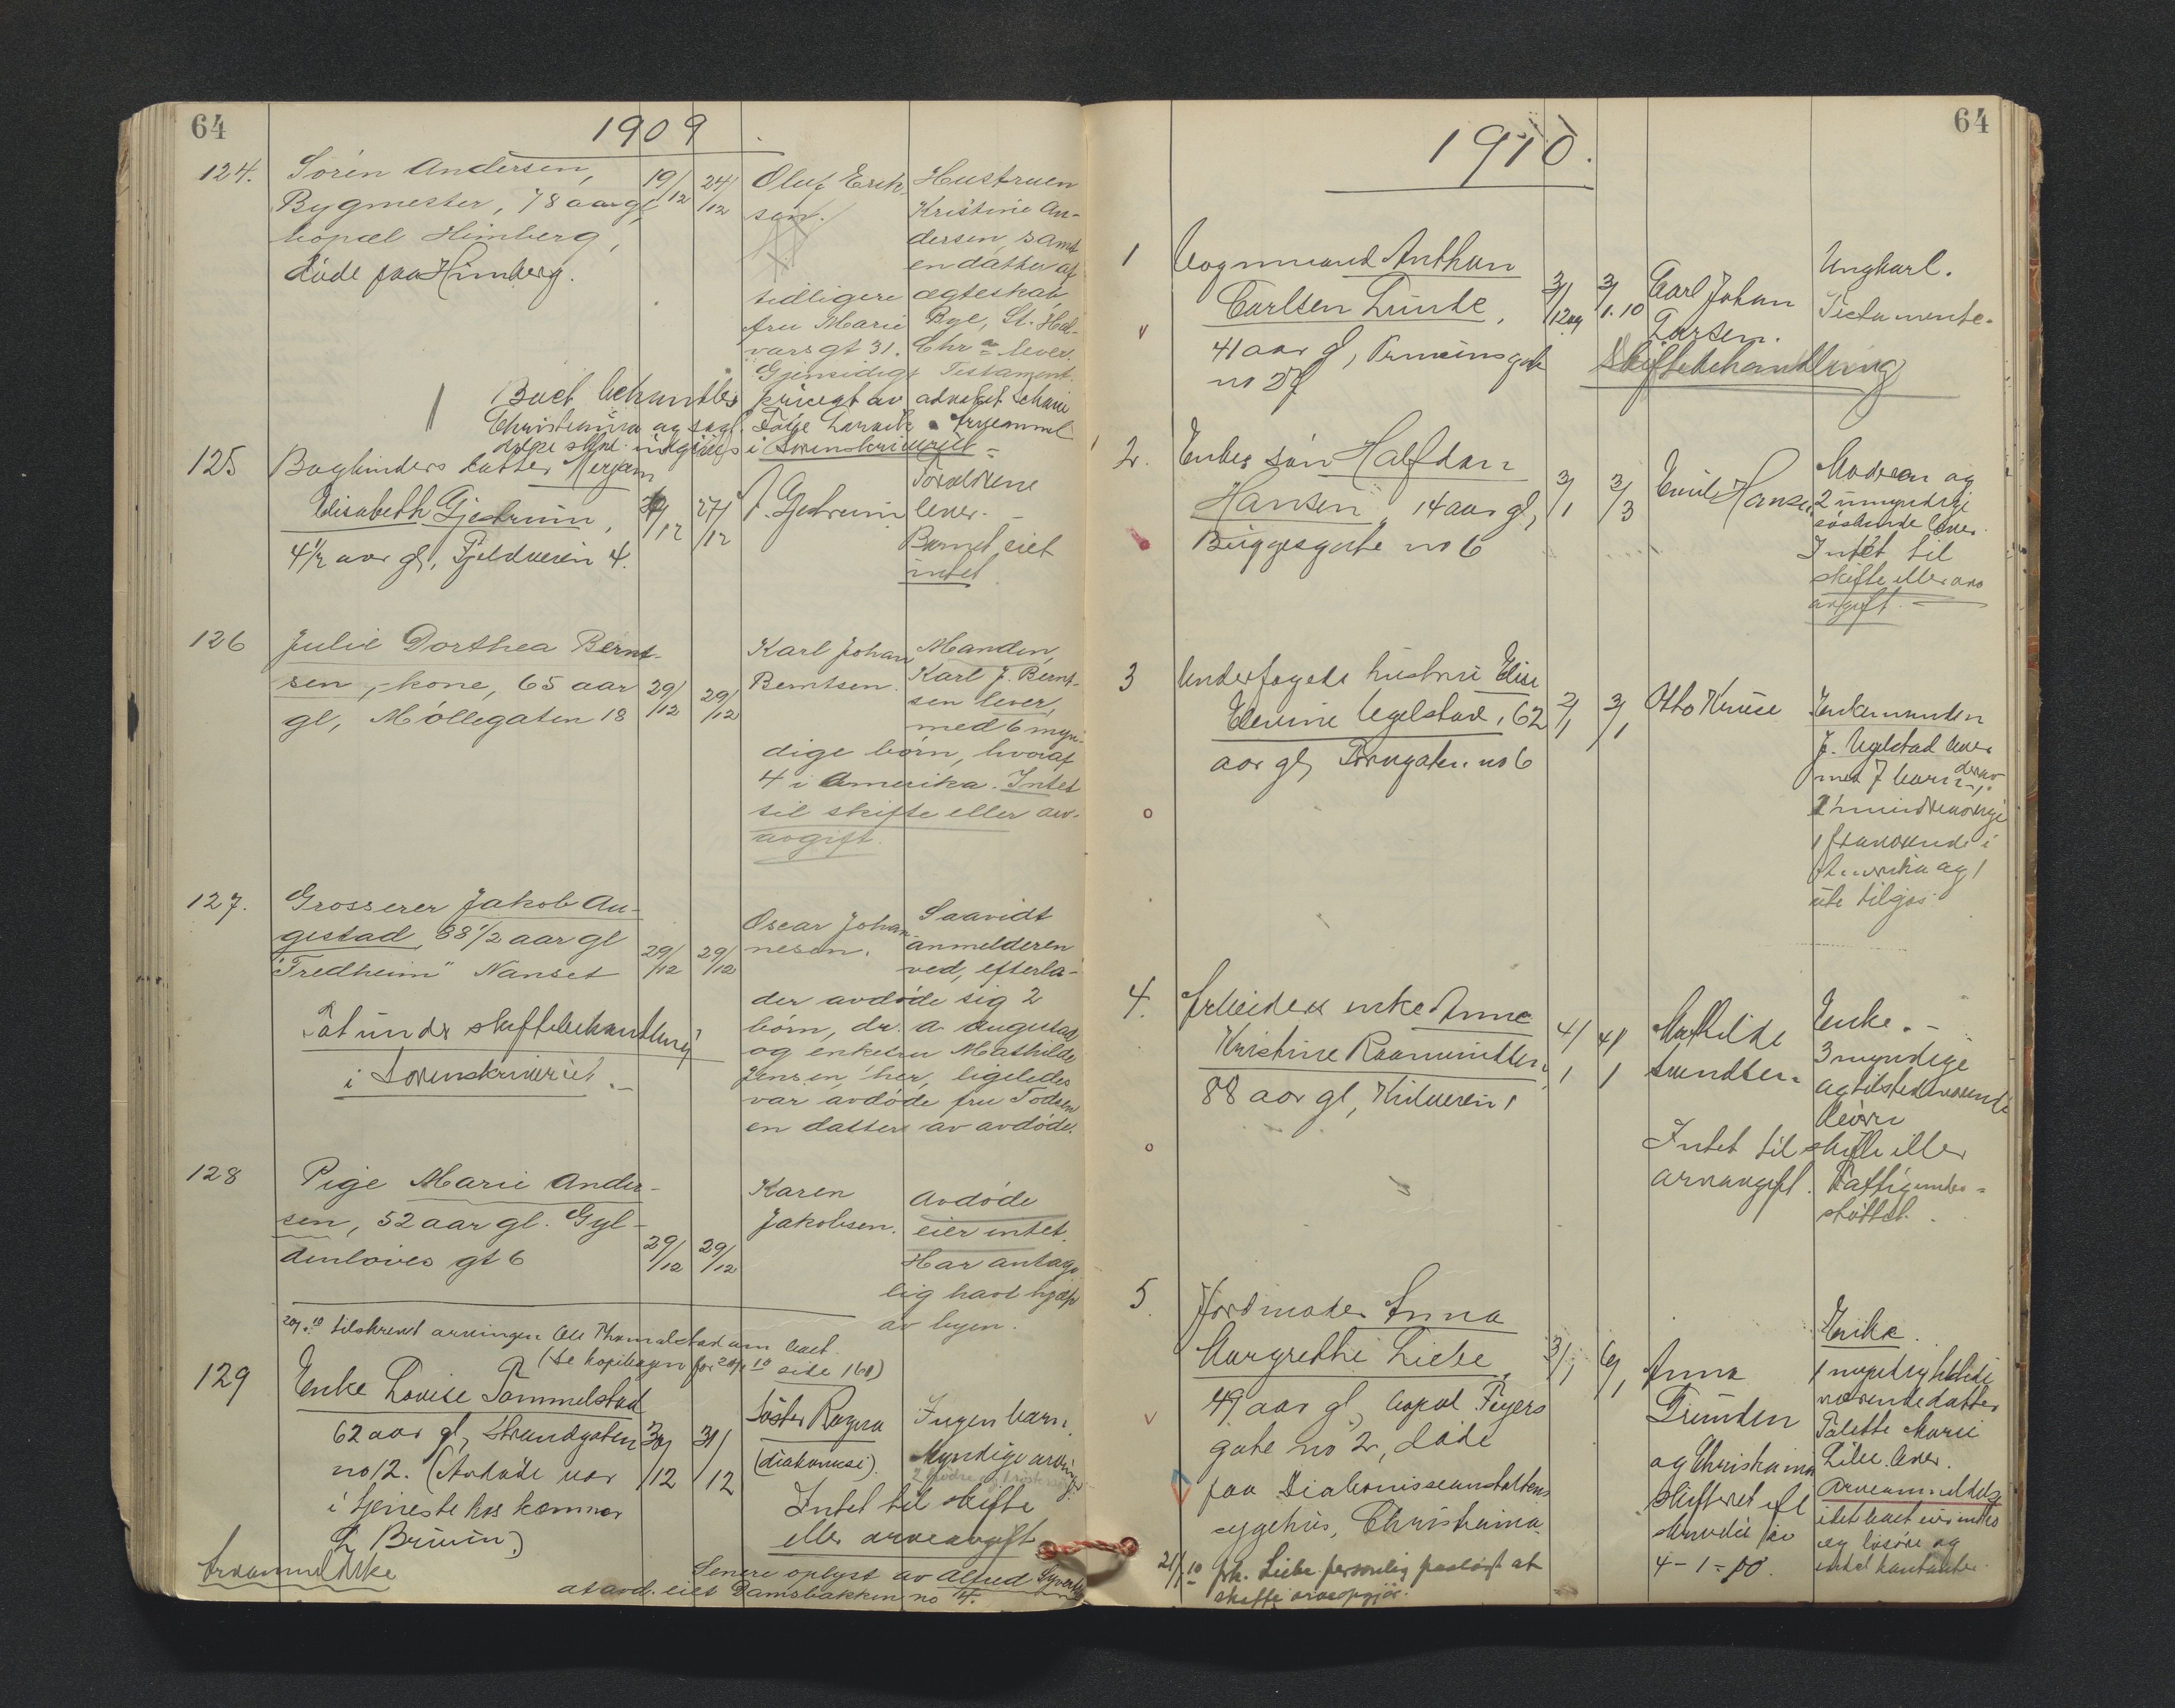 64
1909
124. Sören Andersen,
Bygmester, 78 aar gl,
bopæl Himberg,
döde paa Himberg.
19/12 24/12
Oluf Erik-
sen.
Hustruen
Kristine An-
dersen, samt
en datter af
tidligere ægteskab,
fru Marie Bye, St. Hal-
vars gt 31. Chr.a lever.
Gjensidigt Testament.
Boet behandles privat av advokat
Christiania og
i Sorenskriveriet
125 Bogbinders datter Mirjam
Elisabeth Gjetrum,
4 1/2 aar gl, Fjeldveien 4.
27/12
J. Gjetrum
Forældrene
lever.
Barnet eiet
intet
126 Julie Dorthea Bernt-
sen, kone, 65 aar
gl, Möllegaten 18
29/12 29/12
Karl Johan
Berntsen.
Manden,
Karl J. Bernt-
sen lever,
med 6 myn-
dige börn, hvoraf
4 i Amerika. Intet
til skifte eller arv-
avgift.
127. Grosserer Jakob Au-
gestad, 88 1/2 aar gl
"Fredheim" Nanset
29/12 29/12
Tat under skiftebehandling
i Sorenskriveriet.
Oscar Johan-
nesen.
Saavidt
anmelderen
ved, efterla-
der avdöde sig 2
börn, dr. A Augestad
og enkefru Mathilde
Jensen, her, ligeledes
var avdöde fru Todsen
en datter av avdöde.
128 Pige Marie Ander-
sen, 52 aar gl. Gyl-
denlöves gt 6
29/12 29/12
Karen
Jakobsen.
Avdöde
eier intet.
Har antage-
lig havt hjælp
av byen.
20/1.10 tilskrevet arvingen Ole Thomalstad om boet
(Se kopibogen for 20/1 10 side 161)
129 Enke Lovise Tommelstad
62 aar gl, Strandgaten
no 12. (Avdöde var
i tjeneste hos kæmner
L. Bruun)
30/12 31/12
Söster Ragna
(diakonisse).
Ingen barn.
Myndige arvinger
2 brödre og 1 söster
Intet til skifte
eller arveavgift
Senere oplyst av Alfred
at avd. eiet Damsbakken no 14.
64
1910.
1 Vognmand Anthon
Carlsen Lunde,
41 aar gl, Prinsens gate
no 27
31/12 09 3/1.10
Carl Johan
Larsen.
Ungkarl.
Testamente.
Skiftebehandling
2. Enkes sön Halfdan
Hansen, 14 aar gl,
Brüggesgate no 6
3/1 3/3
Emil Hansen
Moderen og
2 umyndige
söskende lever.
Intet til
skifte eller arve
avgift.
3 Underfogeds hustru Elise
Elevine Ugelstad, 62
aar gl, Torvgaten no 6
2/1 3/1
Otto Kruse
Enkemanden
J. Ugelstad lever
med 7 barn, derav
1 mindreaarige
1 fraværende i
Amerika og 1
ute tilsjös.
4. Arbeiders enke Anna
Kristine Raamundsen,
88 aar gl, Kilveien 1
4/1 4/1
Mathilde
Lundsen
Enke.
3 myndige
og tilstedeværende
börn
Intet til skifte eller
arveavgift. Fattigunder-
stöttet.
5. Jordmoder Anna
Margrethe Liebe,
49 aar gl, bopæl Feyers
gate no 2, döde
paa Diakonisseanstaltens
sygehus, Christiania.
3/1 6/1
Anna
Trunden
og Christiania
skifteret efl
skrivelse av
4-1-10.
Enke.
1 myndig tilstede
værende datter
Marie
Liebe lever.
Arveanmeldelse
og lösöre og
intet kontanter
21/1.10 frk. Liebe personlig paalagt at
skaffe arveopgjör.